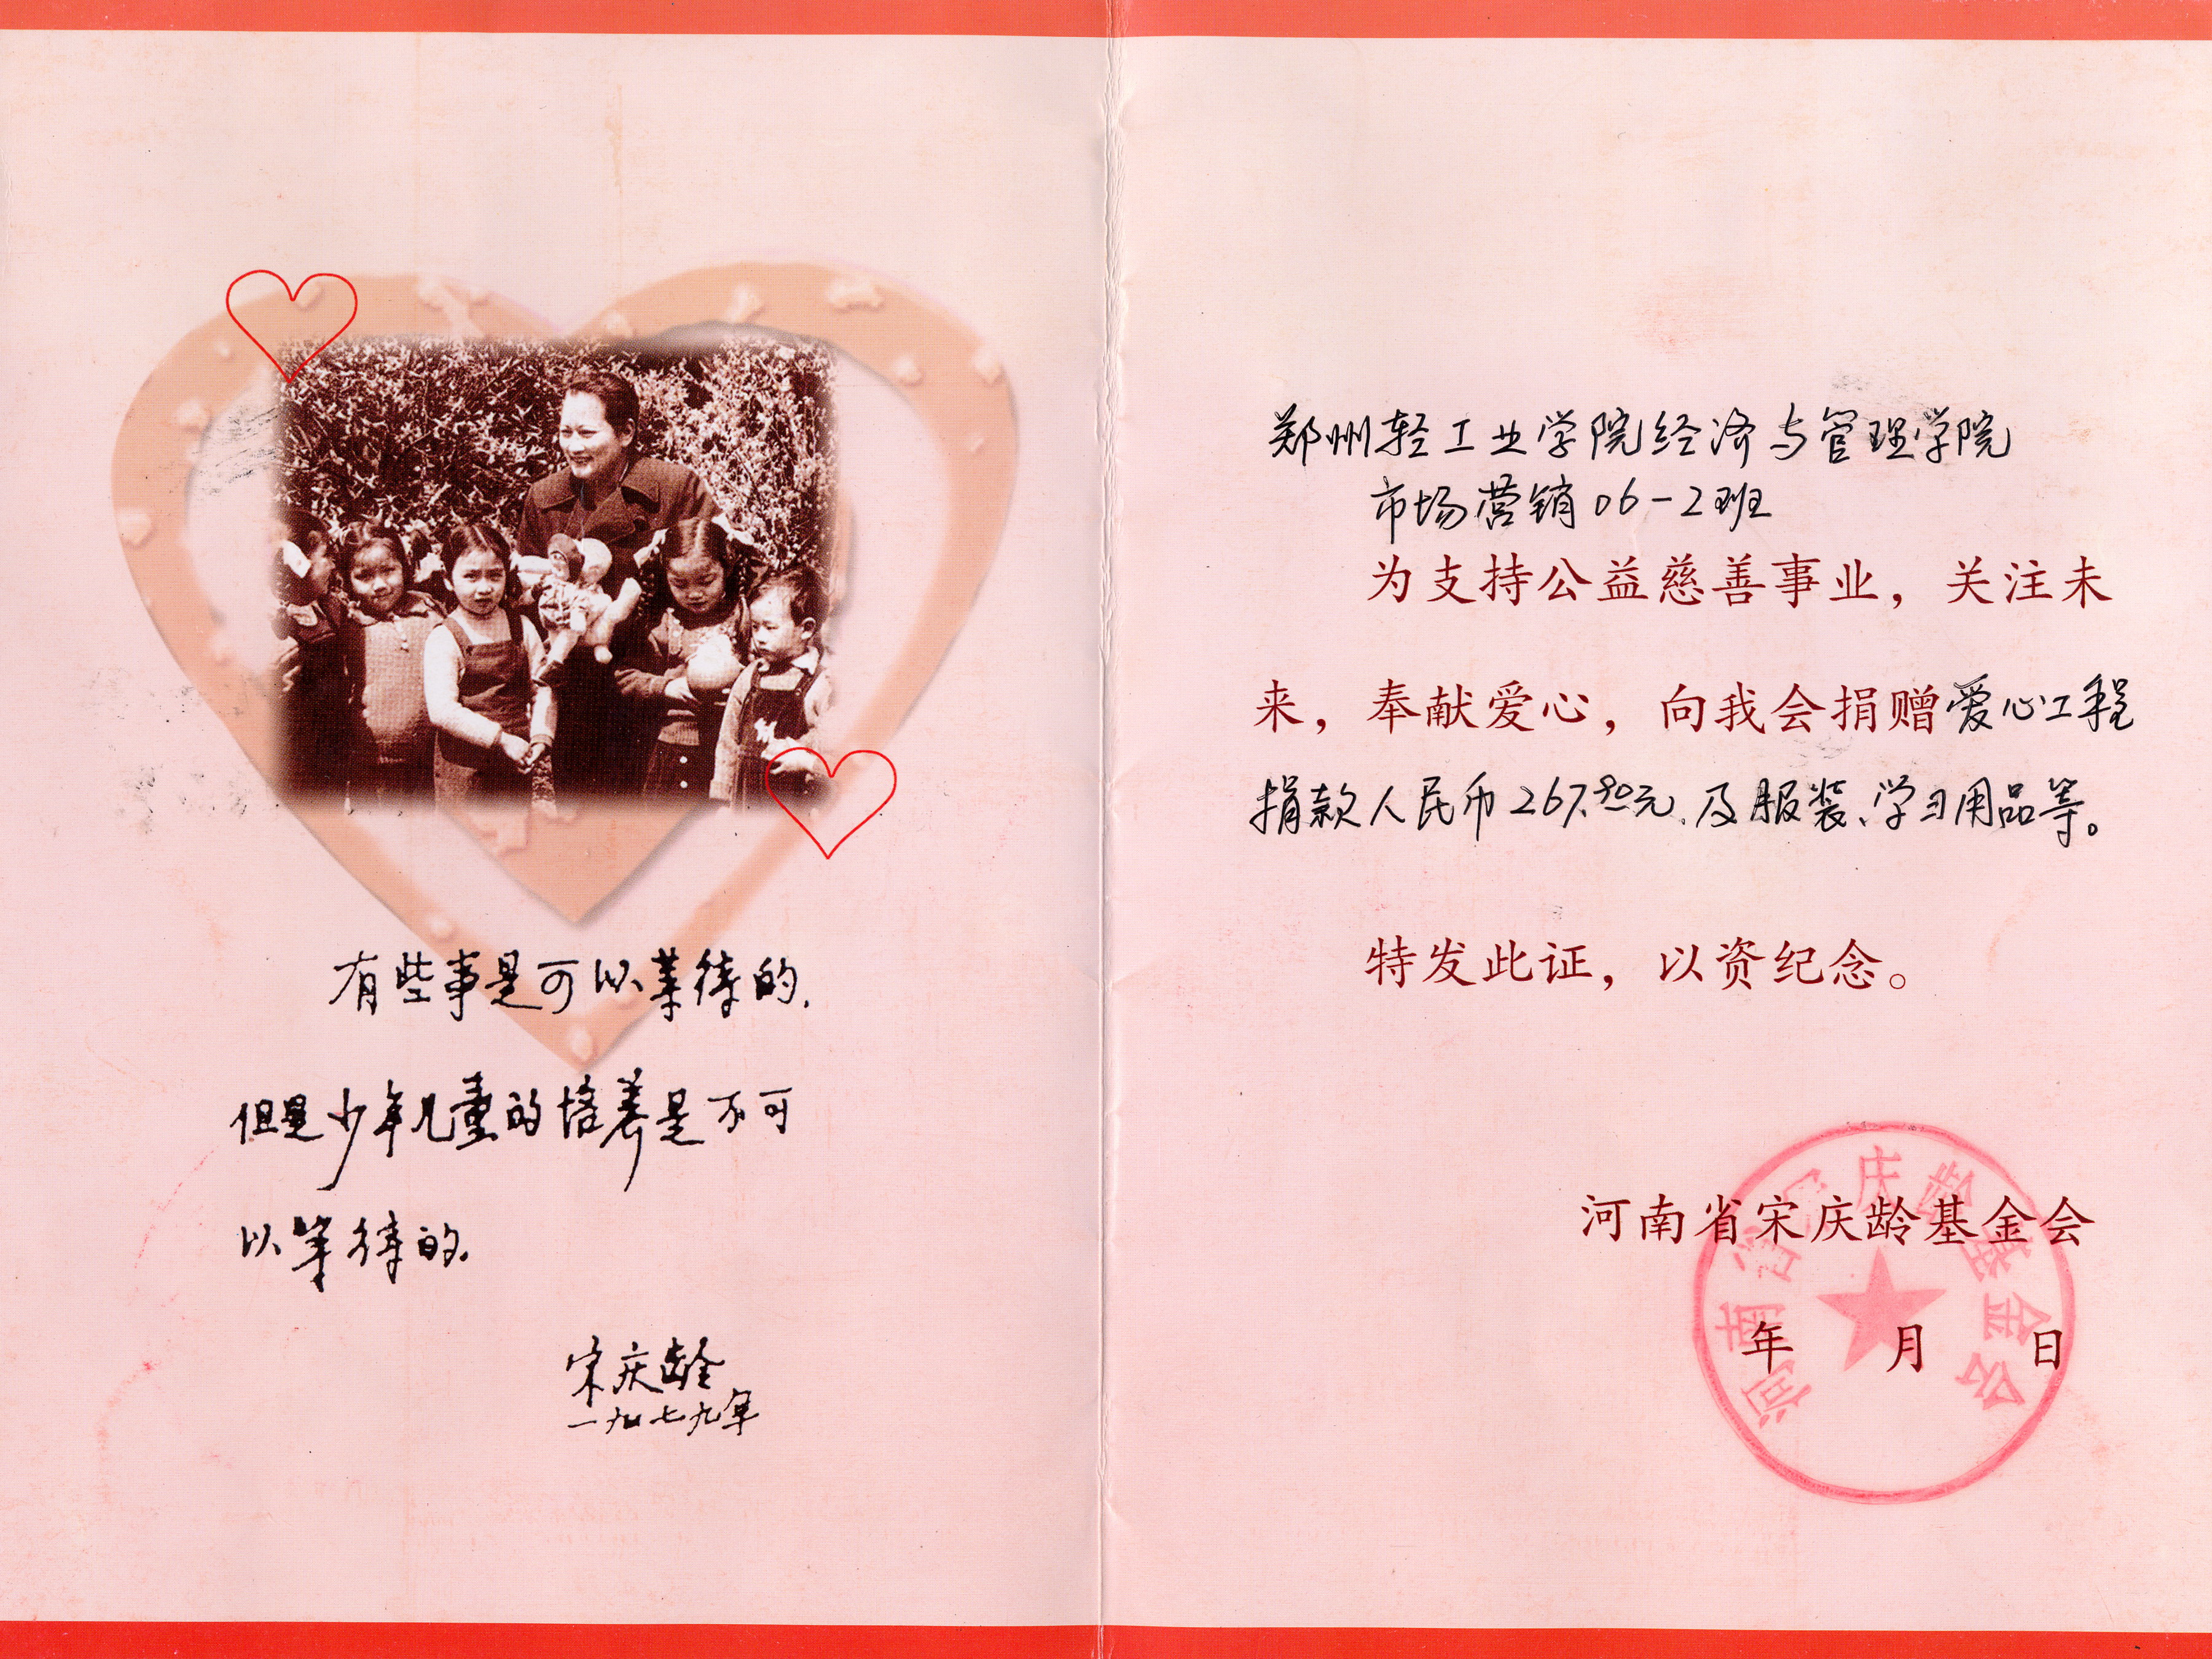 有些事是可以等待的.
但是少年儿童的培养是不可
以等待的.
宋庆龄
一九七九年
郑州轻工业学院经济与管理学院
市场营销06-2班
为支持公益慈善事业，关注未
来，奉献爱心，向我会捐赠爱心工程
捐款人民币267.90元.及服装、学习用品等。
特发此证，以资纪念。
河南省宋庆龄基金会
年 月 日
河南省宋庆龄基金会